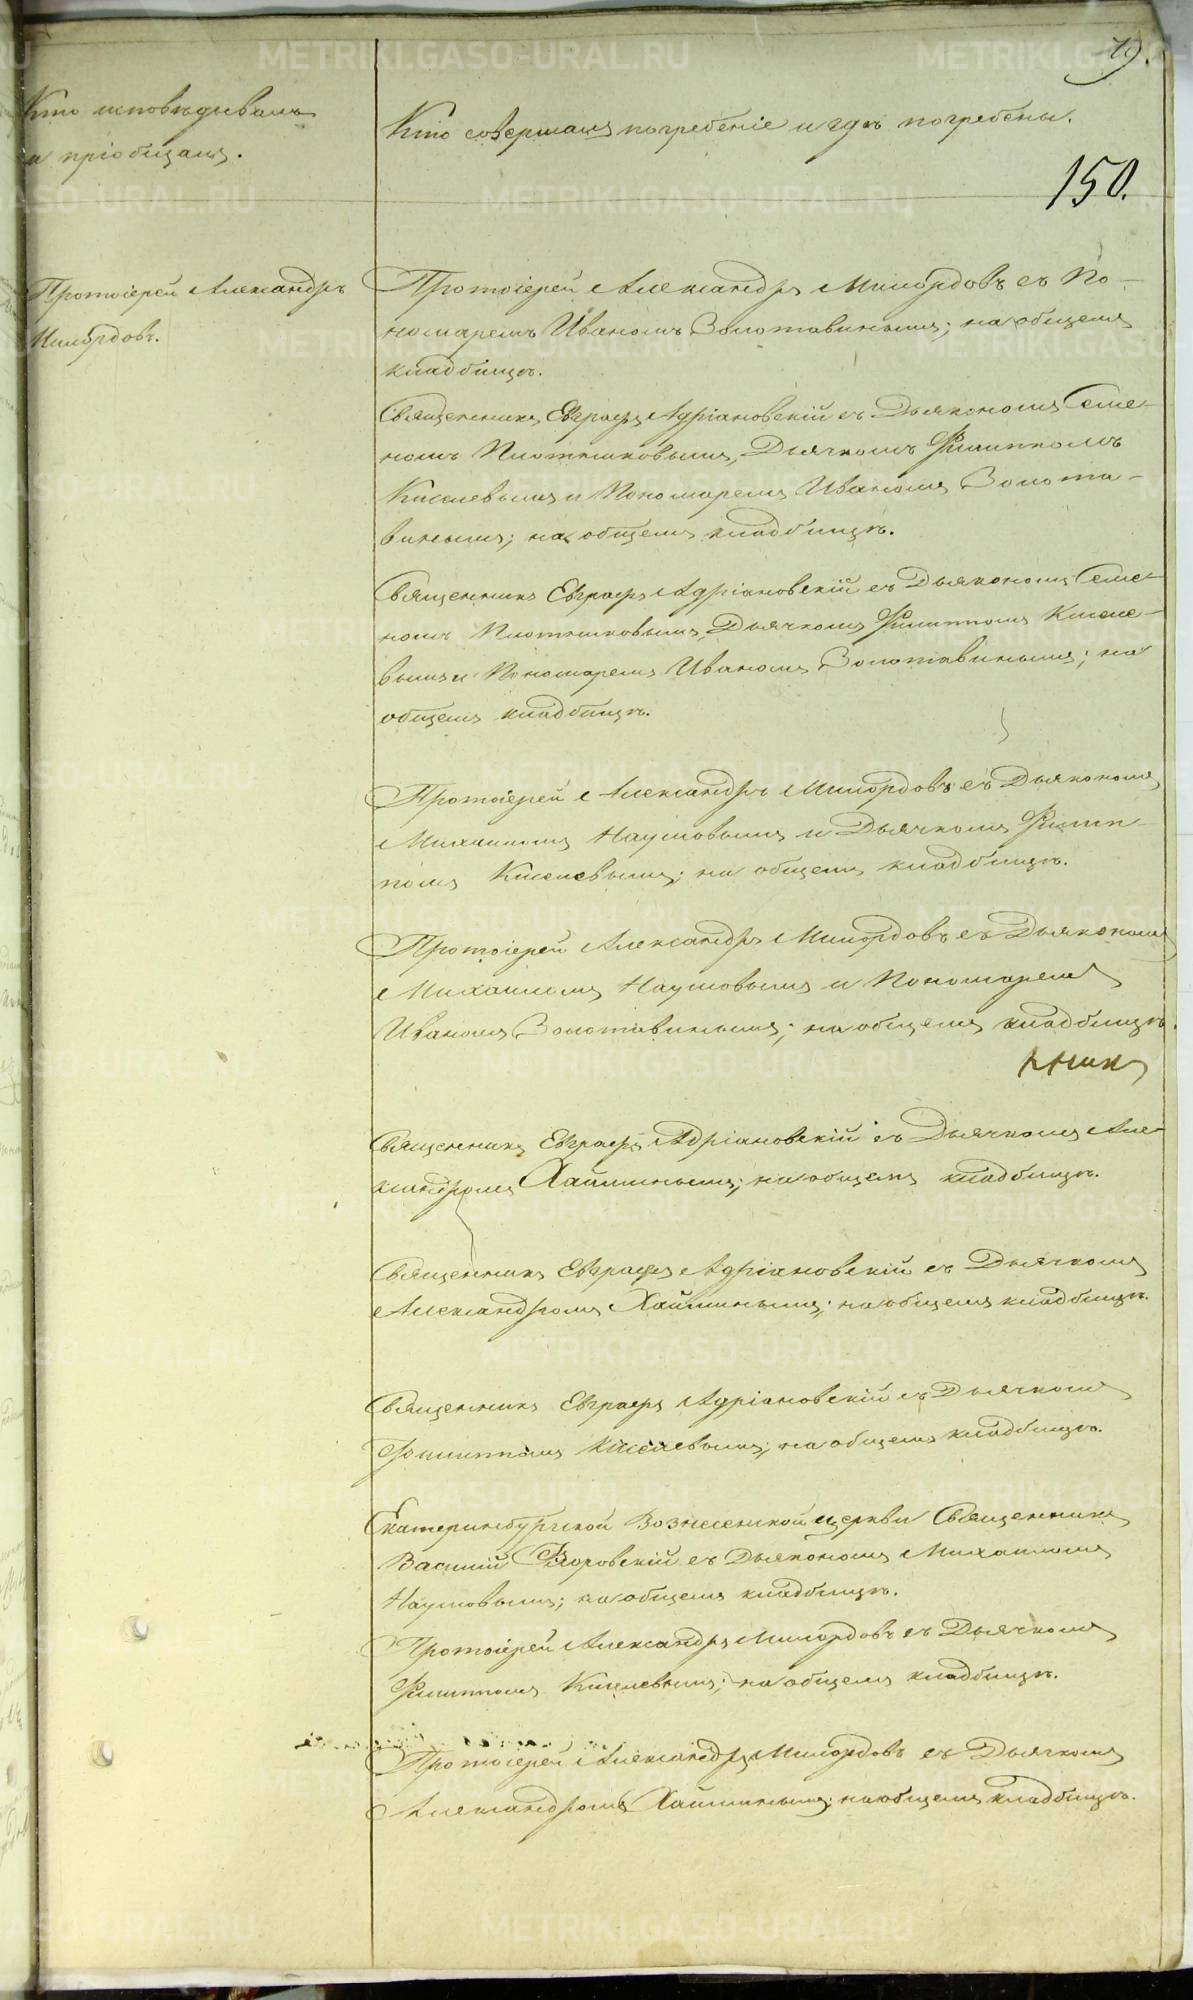 79.
Кто исповѣдывалъ
и пріобщалъ.
Кто совершалъ погребеніе и гдѣ погребены.
150.
Протоіерей Александръ
Милордовъ.
Протоіерей Александръ Милордовъ съ По-
номаремъ Иваномъ Золотавинымъ; на общемъ
кладбищѣ.
Священникъ Евграфъ Адріановскій съ Дьякономъ Семе-
номъ Плотниковымъ, Дьячкомъ Филиппомъ
Киселевымъ и Пономаремъ Иваномъ Золота-
винымъ; на общемъ кладбищѣ.
Священникъ Евграфъ Адріановскій съ Дьякономъ Семе-
номъ Плотниковымъ, Дьячкомъ Филиппомъ Кисле-
вымъ и Пономаремъ Иваномъ Золотавинымъ; на
общемъ кладбищѣ.
Протоіерей Александръ Милордовъ съ Дьякономъ
Михаиломъ Наумовымъ и Дьячкомъ Филип-
помъ Киселевымъ; на общемъ кладбищѣ.
Протоіерей Александръ Милордовъ съ Дьякономъ
Михаиломъ Наумовымъ и Пономаремъ
Иваномъ Золотавинымъ; на общемъ кладбищѣ.
Священникъ Евграфъ Адріановскій съ Дьячкомъ Але-
ксандромъ Хайминымъ; на общемъ кладбищѣ.
Священникъ Евграфъ Адріановскій съ Дьячкомъ
Александромъ Хайминымъ; на общемъ кладбищѣ.
Священникъ Евграфъ Адріановскій съ Дьячкомъ
Филиппомъ Киселевымъ; на общемъ кладбищѣ.
Екатеринбургской Вознесенской церкви Священникъ
Василій съ Дьякономъ Михаиломъ
Наумовымъ; на общемъ кладбищѣ.
Протоіерей Александръ Милордовъ съ Дьячкомъ
Филиппомъ Киселевымъ; на общемъ кладбищѣ.
Протоіерей Александръ Милордовъ съ Дьячкомъ
Александромъ Хайминымъ; на общемъ кладбищѣ.
METRIKI.GASO-URAL.RU